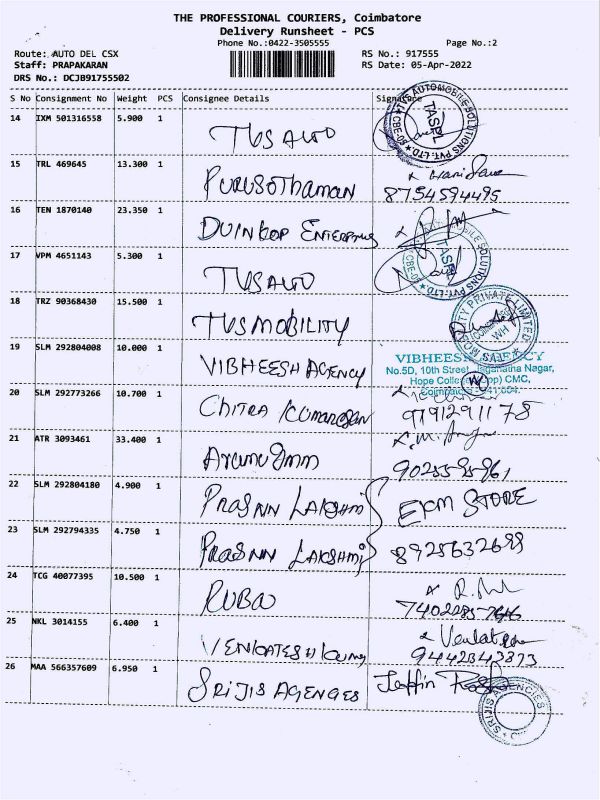 THE PROFESSIONAL COURIERS, Coimbatore
Delivery Runsheet - PCS
Phone No.:0422-3505555 Page No.:2
Route: AUTO DEL CSX RS No.: 917555
Staff: PRAPAKARAN RS Date: 05-Apr-2022
DRS No.: DCJB91755502
S No Consignment No Weight PCS Consignee Details Signature
14 IXM 501316558 5.900 1 TVS AUTO
15 TRL 469645 13.300 1 PURUSOTHAMAN
8754594495
16 TEN 1870140 23.350 1
17 VPM 4651143 5.300 1 TVS AUTO
18 TRZ 90368430 15.500 1 TVS MOBILITY
19 SLM 292804008 10.000 1 VIBHEESH AGENCY
VIBHEESH AGENCY
No.5D, 10th Street, Jaganatha Nagar,
Hope College (Opp) CMC,
20 SLM 292773266 10.700 1 CHITRA
21 ATR 3093461 33.400 1
22 SLM 292804180 4.900 1 PRASNN LAKSHMI
EKM STORE
23 SLM 292794335 4.750 1 PRASNN LAKSHMI
24 TCG 40077395 10.500 1 RUBA
25 NKL 3014155 6.400 1
9442343373
26 MAA 566357609 6.950 1 SRIJIS AGENCIES
SRIJIS AGENCIES